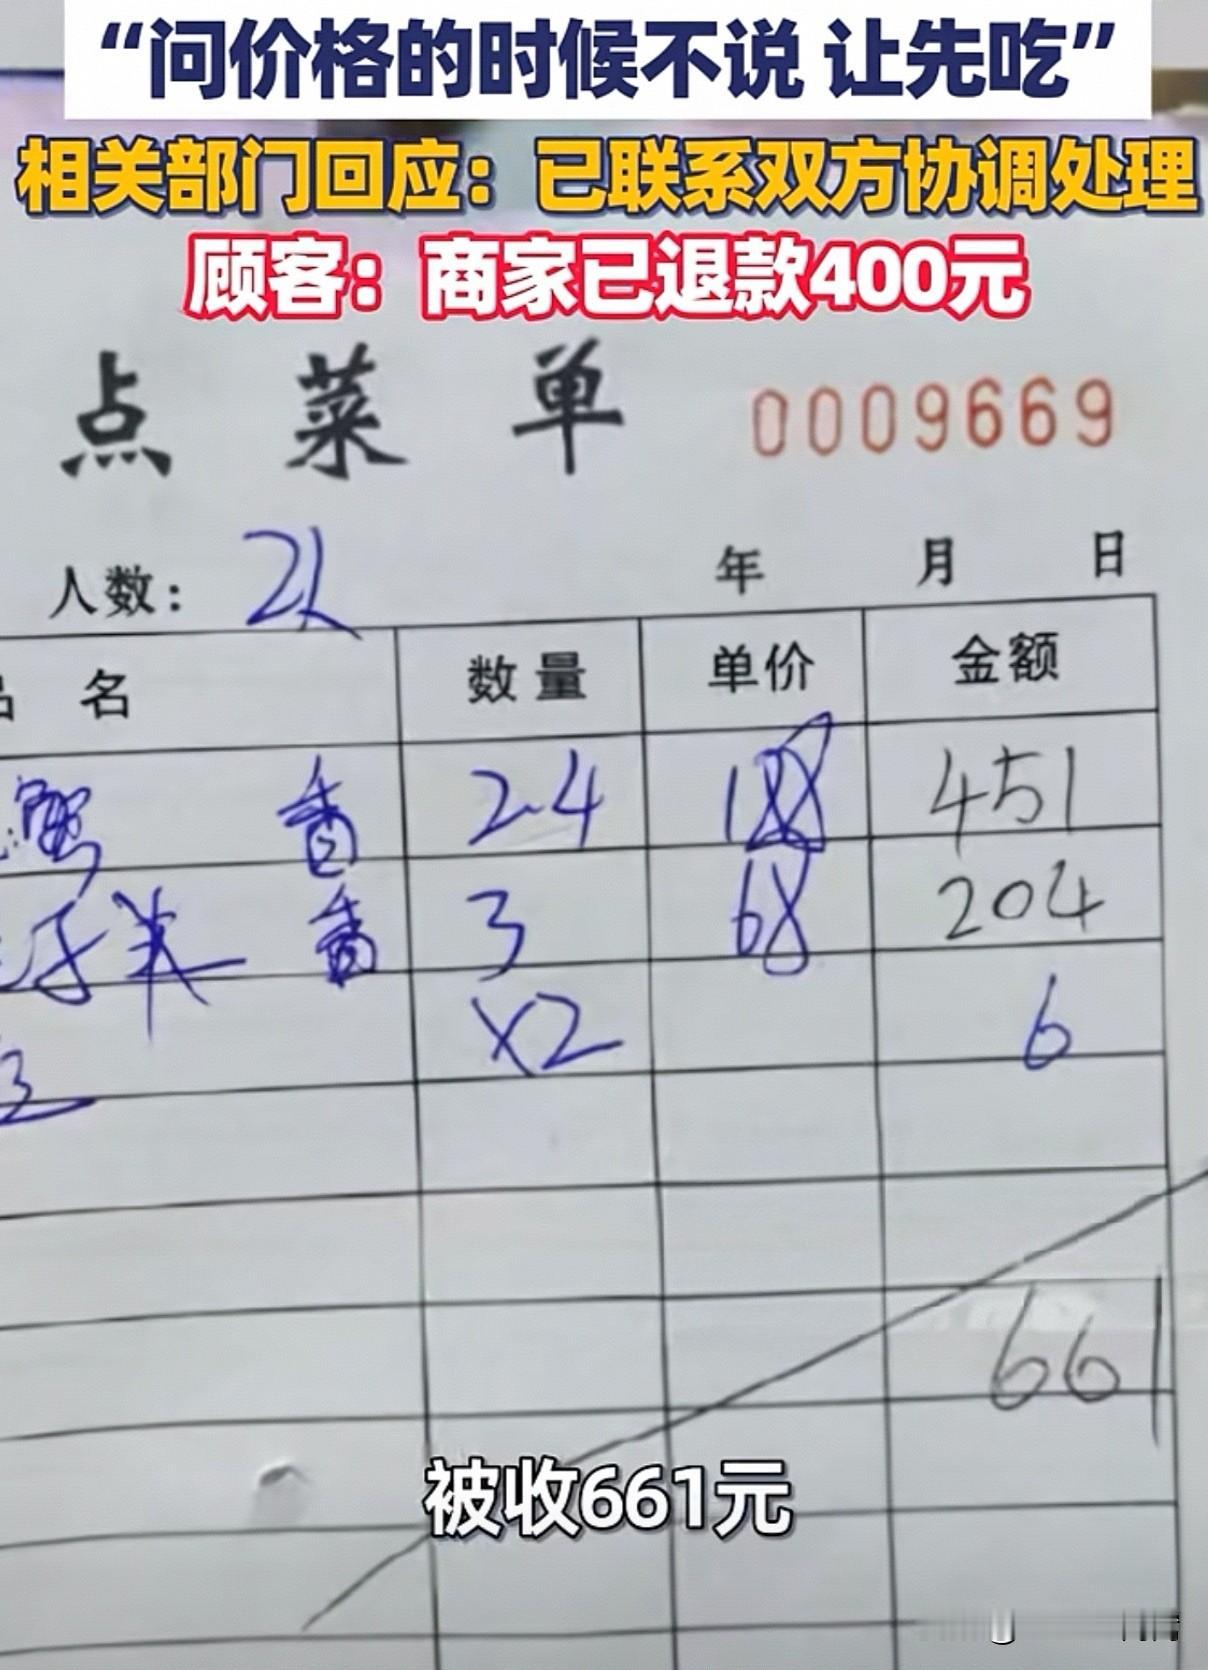 “问价格的时候不说 让先吃”
相关部门回应：已联系双方协调处理
顾客：商家已退款400元
点菜单 0009669
人数：2人 年 月 日
名 数量 单价 金额
蟹 2.4 188 451
3 68 204
X2 6
661
被收661元